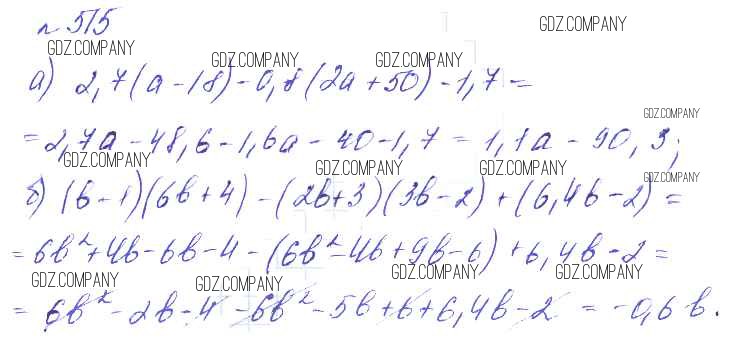 № 515
GDZ.COMPANY
GDZ.COMPANY GDZ.COMPANY GDZ.COMPANY
а) 2,7(a-18)-0,8(2a+50)-1,7=
GDZ.COMPANY
=2,7a-48,6-1,6a-40-1,7=1,1a-90,3;
GDZ.COMPANY GDZ.COMPANY GDZ.COMPANY GDZ.COMPANY
б) (b-1)(6b+4)-(2b+3)(3b-2)+(6,4b-2)=
=6b²+4b-6b-4-(6b²-4b+9b-6)+6,4b-2=
GDZ.COMPANY GDZ.COMPANY GDZ.COMPANY GDZ.COMPANY
=6b²-2b-4-6b²-5b+6+6,4b-2=-0,6b.